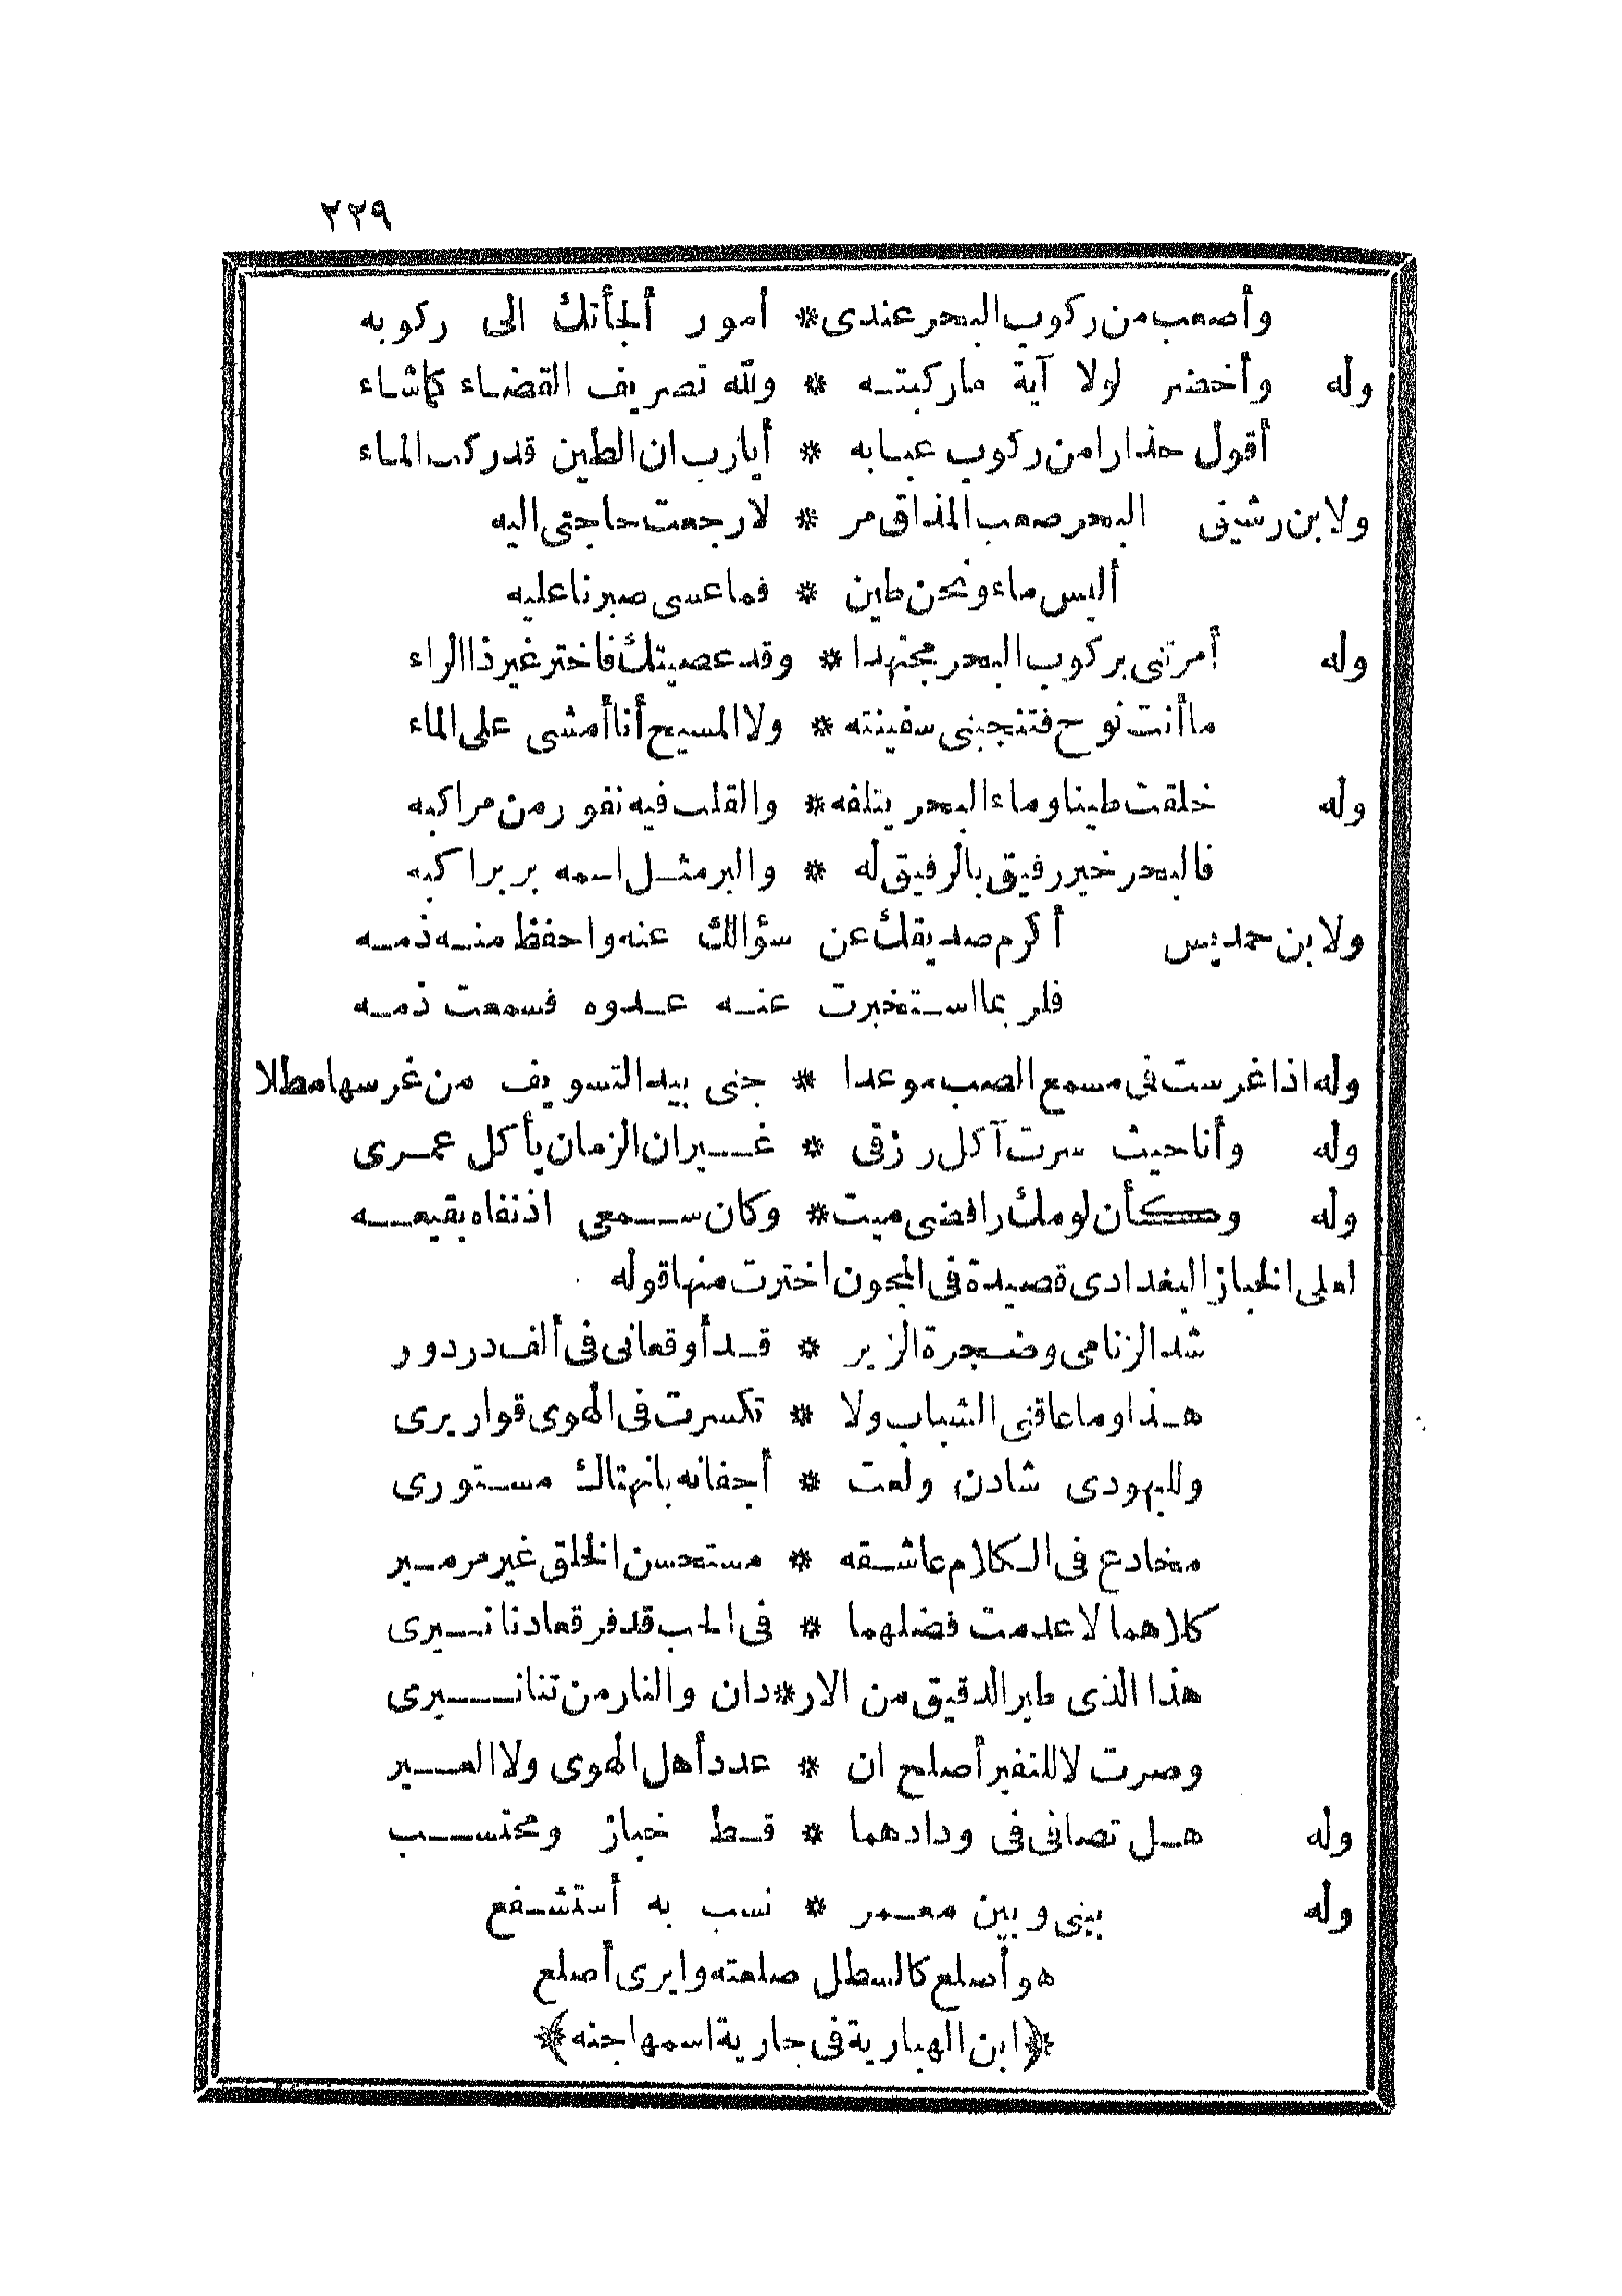 ٢٢٩
وأصعب من ركوب البحر عندى * أمور ألجأتك الى ركوبه
وله وأخضر لولا آية ماركبتـه * ولله تصريف القضاء كماشاء
أقول حذارا من ركوب عبابه * أيارب ان الطين قدركب الماء
ولابن رشيق البحر صعب المذاق مر * لارجعت حاجتى اليه
أليس ماء ونحن طين * فما عسى صبرنا عليه
وله أمرتنى بركوب البحر مجتهدا * وقد عصيتك فاختر غير ذا الراء
ما أنت نوح فتنجينى سفينته * ولا المسيح أنا أمشى على الماء
وله خلقت طينا وماء البحر يتلفه * والقلب فيه نفور من مراكبه
فالبحر خير رفيق بالرفيق له * والبر مثل اسمه بر براكبه
ولابن حمديس أكرم صديقك عن سؤالك عنه واحفظ منه ذمه
فلربما استخبرت عنه عدوه فسمعت ذمه
وله اذا غرست فى مسمع الصب موعدا * جنى بيد التسويف من غرسها مطلا
وله وأنا حيث سرت آكل رزقى * غير ان الزمان يأكل عمرى
وله وكأن لومك رافضى ميت * وكان سمعى اذ نفاه بقيعه
لعلى الخباز البغدادى قصيدة فى المجون اخترت منها قوله
شد الزنامى وضجرة الزير * قد أوقعانى فى ألف دردور
هذا وما عاقنى الشباب ولا * تكسرت فى الهوى قواريرى
ولليهودى شادن ولعت * أجفانه بانهتاك مستورى
مخادع فى الكلام عاشقه * مستحسن الخلق غير مرمير
كلاهما لا عدمت فضلهما * فى الحب قد فرقعا دنانيرى
هذا الذى طير الدقيق من الار * دان والنار من تنانيرى
وصرت لا للنفير أصلح ان * عدد أهل الهوى ولا العير
وله هل تصافى فى ودادهما * قط خباز ومحتسب
وله بينى وبين معمر * نسب به أستشفع
هو أصلع كالسطل صلعته وايرى أصلع
﴿ابن الهبارية فى جارية اسمها جنه﴾